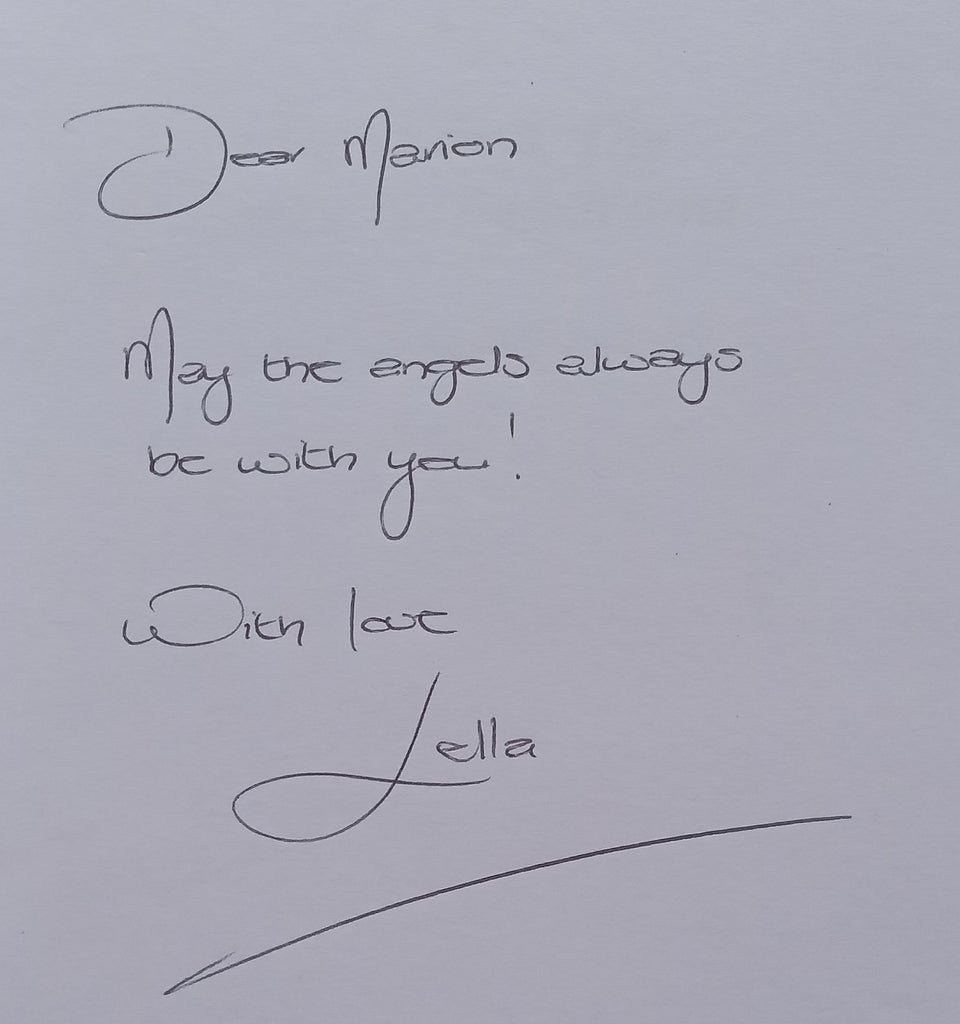 Dear Marion
May the angels always
be with you!
With love
Lella